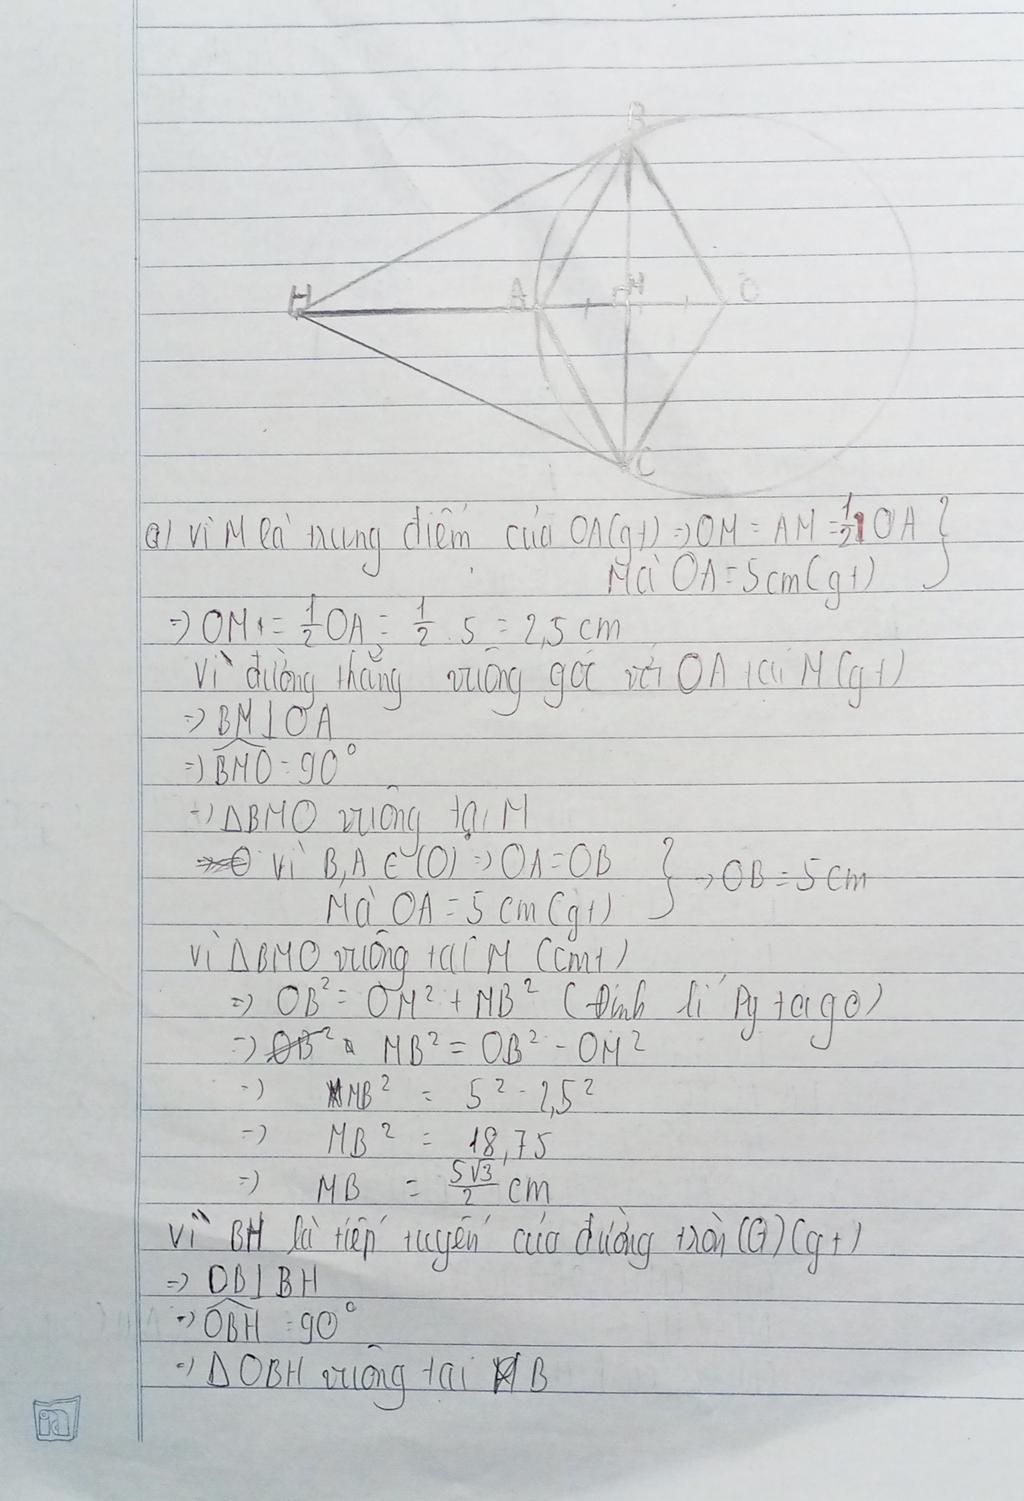 B
H
A
M
O
C
a) Vì M là trung điểm của OA(gt) => OM = AM = 1/2 OA }
Mà OA = 5cm(gt)
=> OM = 1/2 OA = 1/2 . 5 = 2,5 cm
Vì đường thẳng vuông góc với OA tại M(gt)
=> BM ⊥ OA
=> BMO = 90°
=> ΔBMO vuông tại M
Vì B, A ∈ (O) => OA = OB } => OB = 5 cm
Mà OA = 5 cm(gt)
Vì ΔBMO vuông tại M (cmt)
=> OB² = OM² + MB² (Định lí Pytago)
=> MB² = OB² - OM²
=> MB² = 5² - 2,5²
=> MB² = 18,75
=> MB = 5√3/2 cm
Vì BH là tiếp tuyến của đường tròn (O) (gt)
=> OB ⊥ BH
=> OBH = 90°
=> ΔOBH vuông tại B